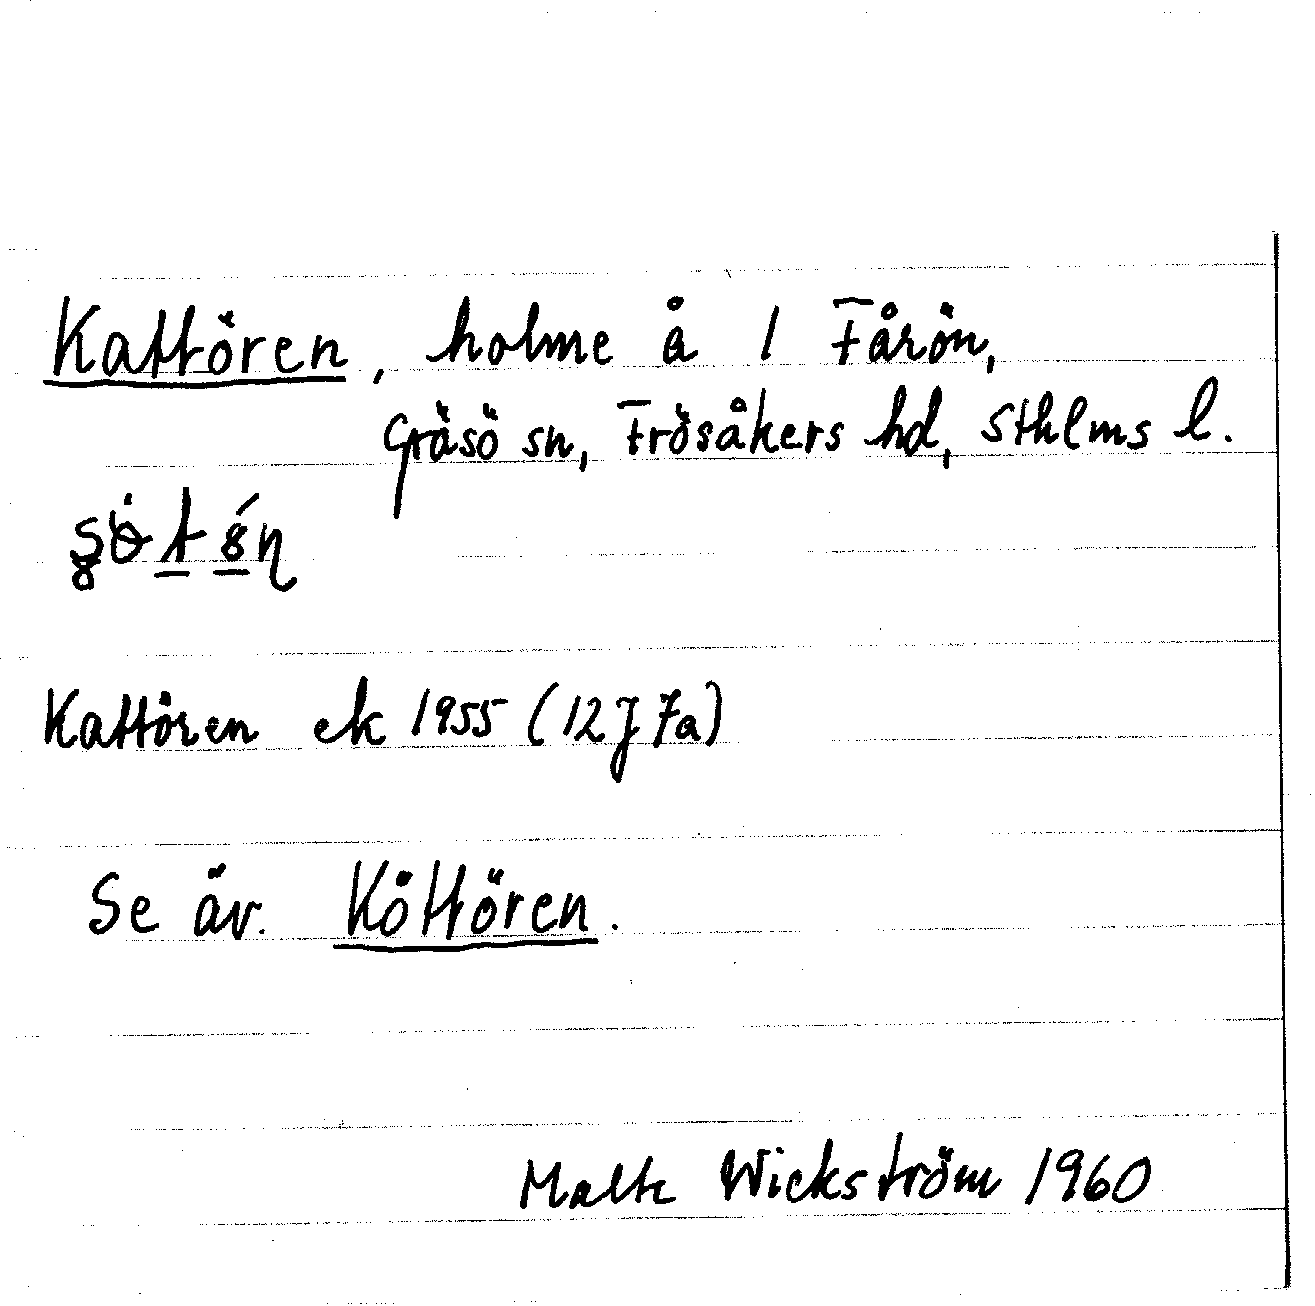 Kattören, holme å 1 Fårön,
Gräsö sn, Frösåkers hd, Sthlms l.
Kattören ek 1955 (12J 7a)
Se äv. Köttören.
Malte Wickström 1960